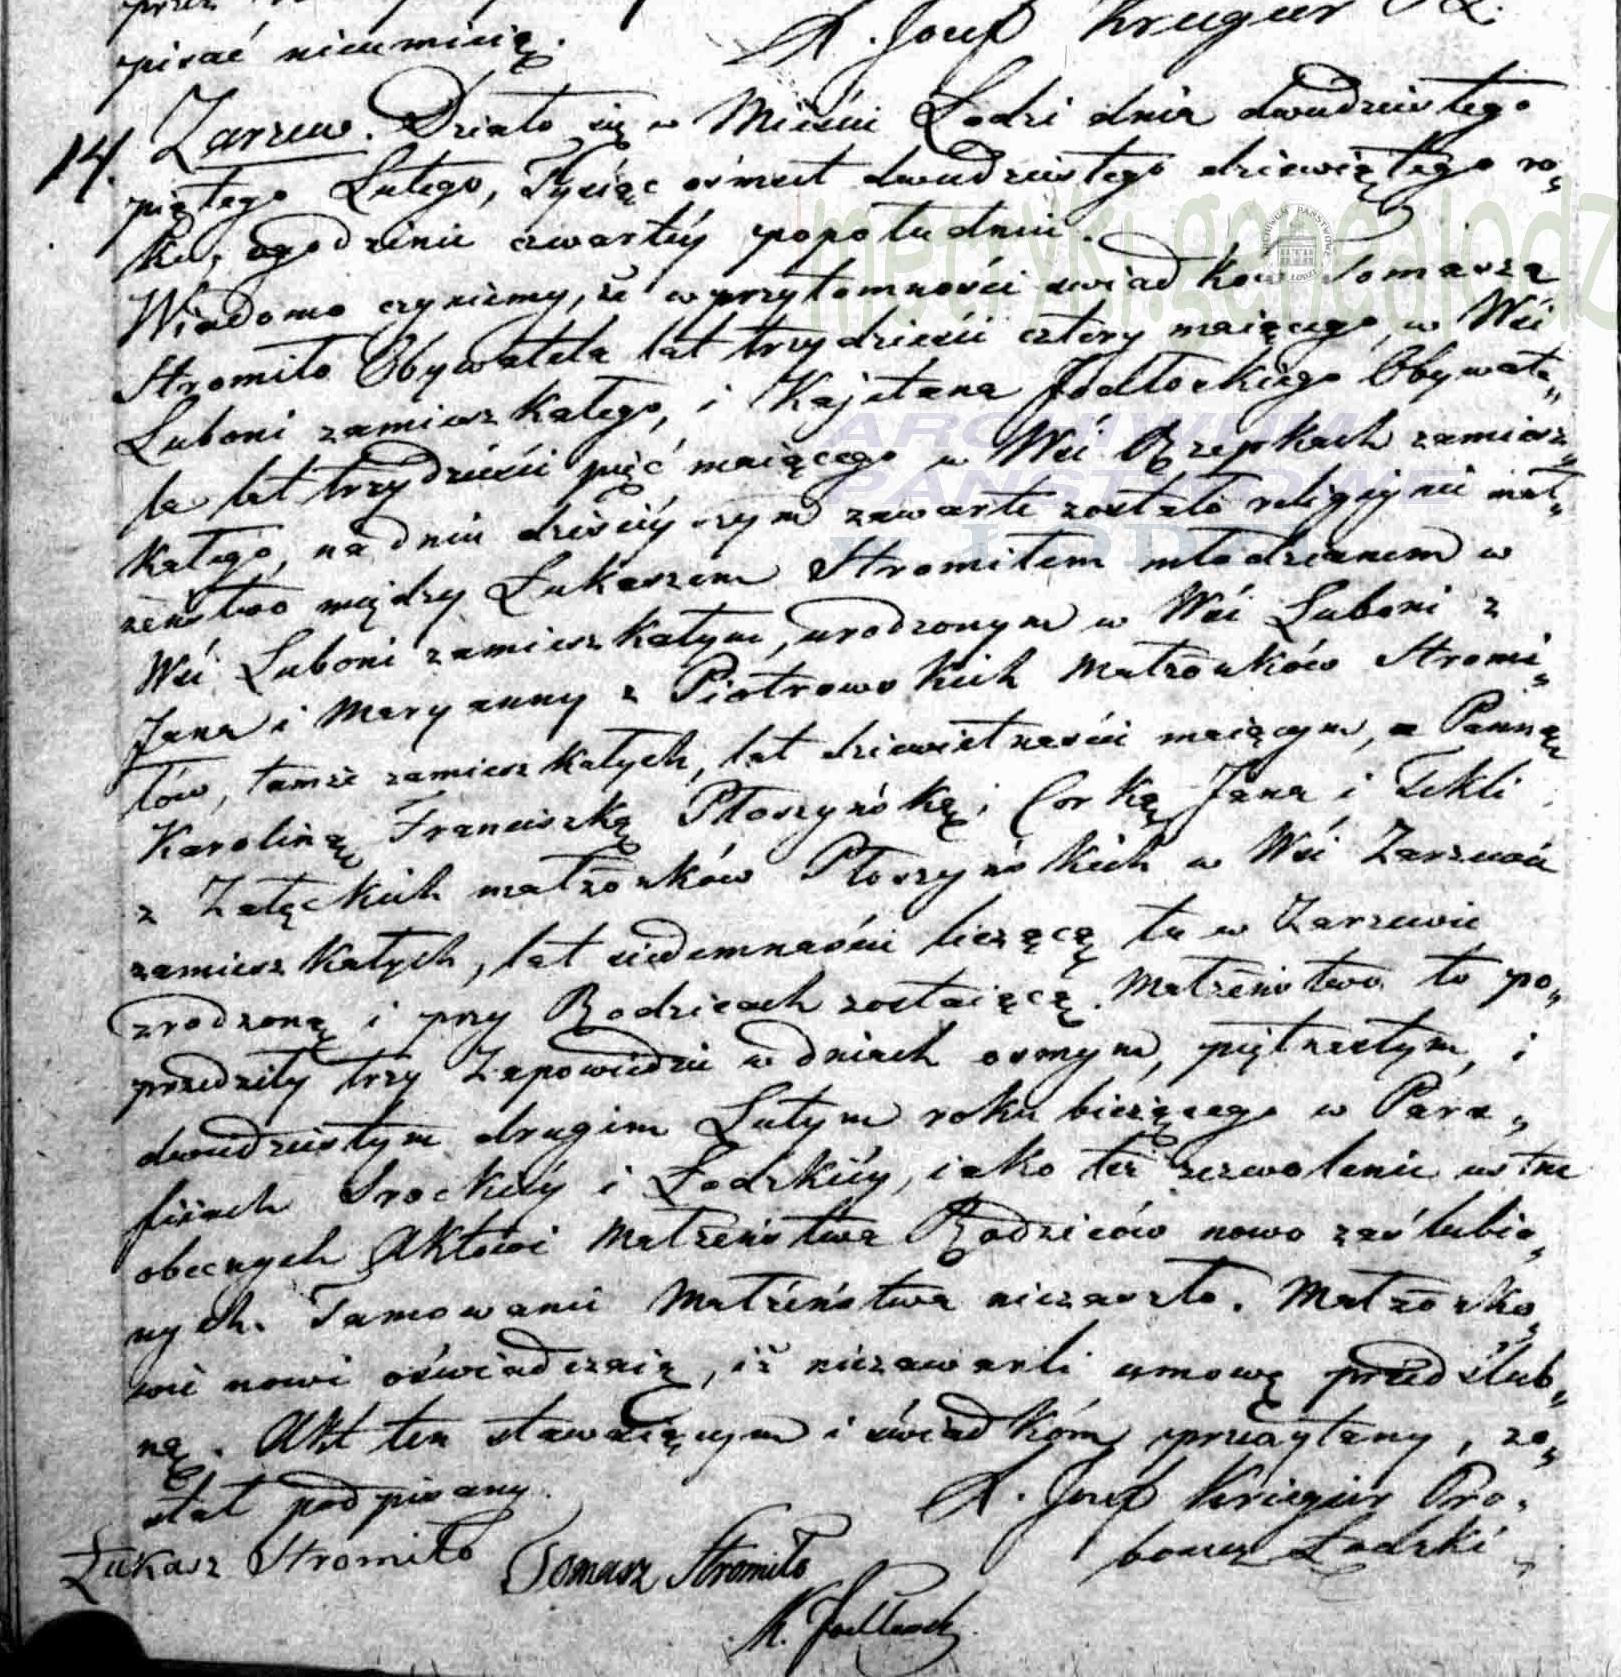 pisać nieumieią.
X. Josef Krieger
14. Zarzew. Działo się w Mieście Łodzi dnia dwudziestego
piątego Lutego, Tysiąc ośmset dwudziestego dziewiątego ro„
ku, o godzinie czwartéy popołudniu.
Wiadomo czyniemy, że w przytomności swiadków Tomasza
Stromiło Obywatela lat trzydzieści cztery maiącego, w Wsi
Luboni zamieszkałego, i Kajetana Jodłoskiego Obywate„
la lat trzydzieści pięć maiącego w Wsi Rzepkach zamiesz„
kałego, na dniu dzisieyszym zawarte zostało religijnie mał„
żeństwo między Łukaszem Stromiłem młodzianem w
Wsi Luboni zamieszkałym, urodzonym w Wsi Luboni z
Jana i Maryanny z Piotrowskich Małżonków Stromi„
łów, tamże zamieszkałych, lat dziewiętnaście maiącym, a Panną
Karoliną Franciszką Płoszyńską, Corką Jana i Tekli
z Załęckich małżonków Płoszyńskich w Wsi Zarzewie
zamieszkałych, lat siedemnaście liczącą tu w Zarzewie
zrodzoną i przy Rodzicach zostaiącą. Małżeństwo to po„
przedziły trzy Zapowiedzie w dniach osmym, piętnastym, i
dwudziestym drugim Lutym roku bieżącego w Para„
fiiach Srockiéy i Łodzkiéy, iako też zezwolenie ustne
obecnych Aktowi Małżeństwa Rodziców nowo zaślubio„
nych. Tamowanie Małżeństwa niezaszło. Małżonko„
wie nowi oświadczaią, iż niezawarli umowę przedślub„
ną. Akt ten stawaiącym i świadkóm przeczytany, zo„
stał podpisany.
X. Josef Krieger Pro„
boszcz Łodzki
Łukasz Stromiło Tomasz Stromiło
K. Jodłoski
metryki.genealodz
ARCHIWUM
PAŃSTWOWE
W ŁODZI
ARCHIWUM PAŃSTWOWE W ŁODZI